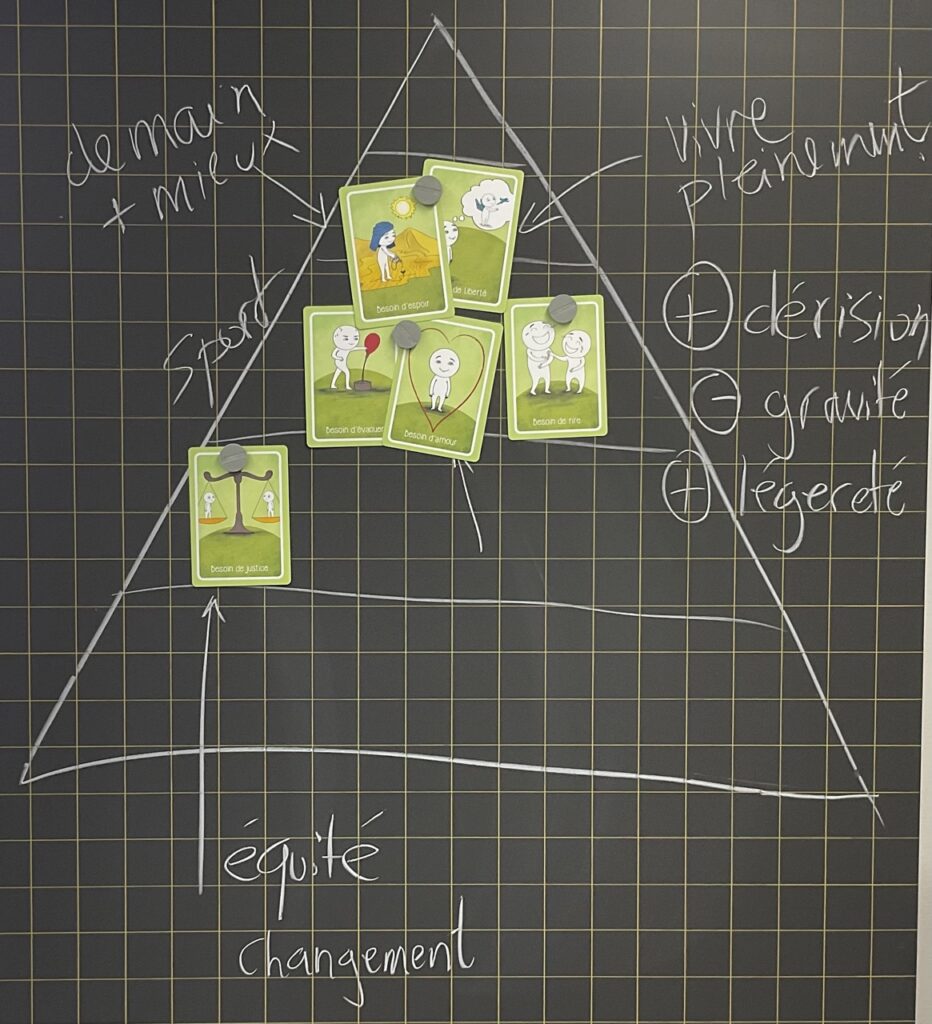 demain
+ mieux
vivre
pleinement
Sport
Besoin d'espoir
de liberté
Besoin d'évacuer
Besoin d'amour
Besoin de rire
+ dérision
- gravité
+ légereté
Besoin de justice
équité
changement